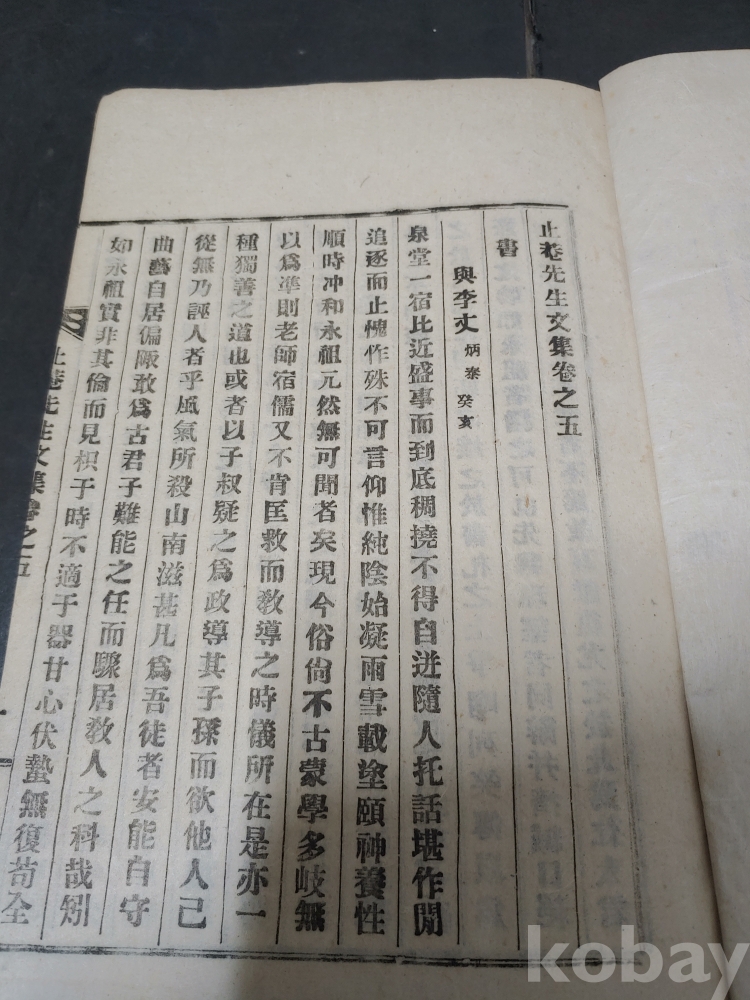 止菴先生文集卷之五
書
與李丈 炳泰 癸亥
泉堂一宿比近盛事而到底稠撓不得自迸隨人托話堪作閒
追逐而止愧作殊不可言仰惟純陰始凝雨雪載塗頤神養性
順時冲和永祖元然無可聞者矣現今俗尙不古蒙學多岐無
以爲準則老師宿儒又不肯匡救而敎導之時儀所在是亦一
種獨善之道也或者以子叔疑之爲政導其子孫而欲他人己
從無乃誣人者乎風氣所殺山南滋甚凡爲吾徒者安能自守
曲藝自居偏陬敢爲古君子難能之任而驟居敎人之科哉矧
如永祖實非其倫而見枳于時不適于器甘心伏蟄無復苟全
止菴先生文集卷之五
一
kobay